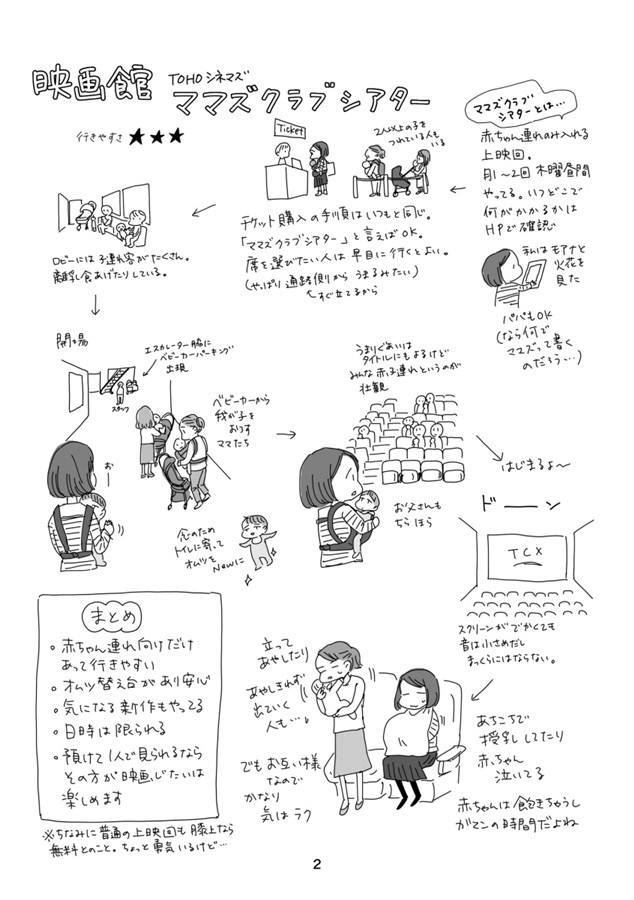 映画館 TOHOシネマズ
ママズクラブシアター
行きやすさ ★★★
ママズクラブ
シアターとは…
赤ちゃん連れのみ入れる
上映回。
月1〜2回 木曜昼間
やってる。いつどこで
何がかかるかは
HPで確認
私はモアナと
火花を
見た
パパもOK
(なら何で
ママズって書く
のだろう…)
Ticket
2人以上の子を
つれている人も
いる
チケット購入の手順はいつもと同じ。
「ママズクラブシアター」と言えばOK。
席を選びたい人は早目に行くとよい。
(やっぱり通路側から うまるみたい)
すぐ立てるから
ロビーには子連れ客がたくさん。
離乳食あげたりしている。
開場
エスカレーター脇に
ベビーカーパーキング
出現
スタッフ
お
ベビーカーから
我が子を
おろす
ママたち
念のため
トイレに寄って
オムツを
Newに
うまりぐあいは
タイトルにもよるけど
みんな赤子連れというのが
壮観
お父さんも
ちらほら
はじまるよ〜
ドーン
TCX
スクリーンがでかくても
音は小さめだし
まっくらにはならない。
あちこちで
授乳してたり
赤ちゃん
泣いてる
赤ちゃんは飽きちゃうし
ガマンの時間だよね
立って
あやしたり
あやしきれず
出ていく
人も…
でもお互い様
なので
かなり
気はラク
まとめ
・赤ちゃん連れ向けだけ
あって行きやすい
・オムツ替え台があり安心
・気になる新作もやってる
・日時は限られる
・預けて1人で見られるなら
その方が映画じたいは
楽しめます
※ちなみに普通の上映回も膝上なら
無料とのこと。ちょっと勇気いるけど…
2